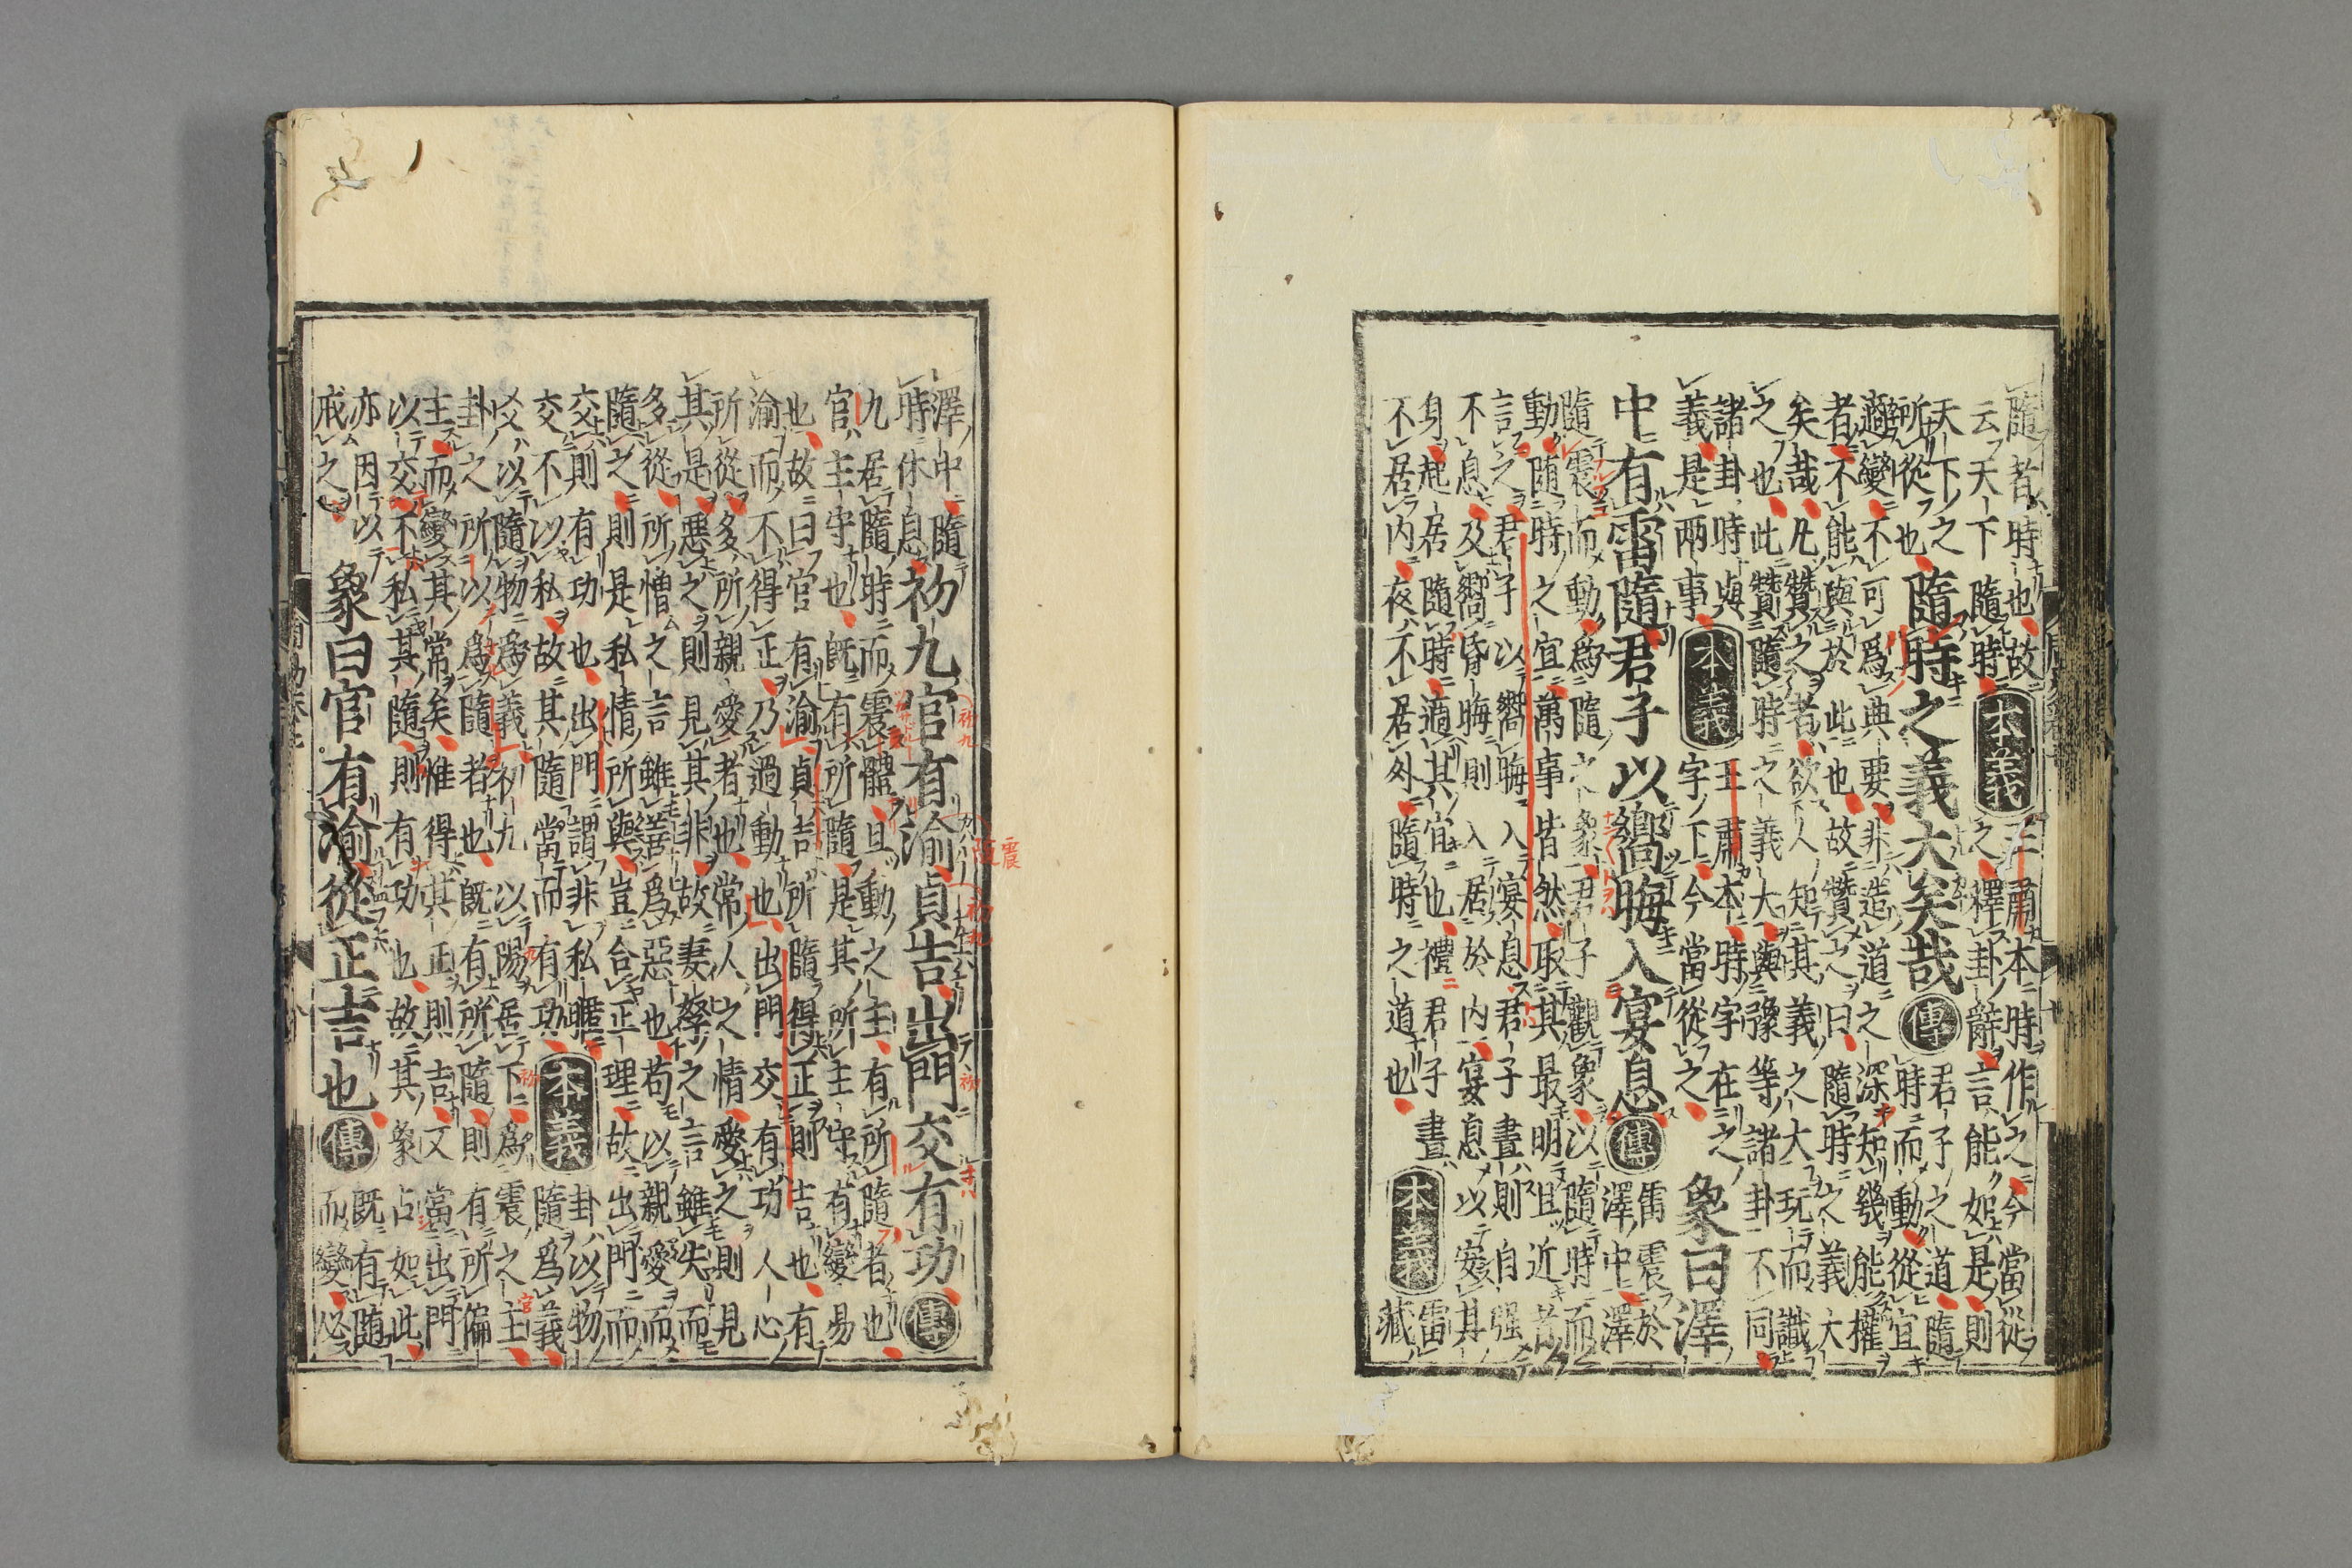 隨者時也故
云天下隨時
本義
王肅本時作之今當從
之釋卦辭言能如是則
天下之
所從也
隨時之義大矣哉
傳
君子之道隨
時而動從宜
適變不可爲典要非造道之深知幾能權
者不能與於此也故贊之曰隨時之義大
矣哉凡贊之者欲人知其義之大玩而識
之也此贊隨時之義大與豫等諸卦不同
諸卦時與
義是兩事
本義
王肅本時字在之
字下今當從之
象曰澤
中有雷隨君子以嚮晦入宴息
傳
雷震於
澤中澤
隨震而動爲隨之象君子觀象以隨時而
動隨時之宜萬事皆然取其最明且近者
言之君子以嚮晦入宴息君子晝則自强
不息及嚮昏晦則入居於内宴息以安其
身起居隨時適其宜也禮君子晝
不居内夜不居外隨時之道也
本義
雷藏
澤中隨
時休息
初九官有渝貞吉出門交有功
傳
九居隨時而震體且動之主有所隨者也
官主守也既有所隨是其所主守有變易
也故曰官有渝貞吉所隨得正則吉也有
渝而不得正乃過動也出門交有功人心
所從多所親愛者也常人之情愛之則見
其是惡之則見其非故妻孥之言雖失而
多從所憎之言雖善爲惡也苟以親愛而
隨之則是私情所與豈合正理故出門而
交則有功也出門謂非私暱
交不以私故其隨當而有功
本義
卦以物
隨爲義
爻以隨物爲義初九以陽居下爲震之主
卦之所以爲隨者也既有所隨則有所偏
主而變其常矣惟得其正則吉又當出門
以交不私其隨則有功也故其象占如此
亦因以
戒之
象曰官有渝從正吉也
傳
既有隨
而變必